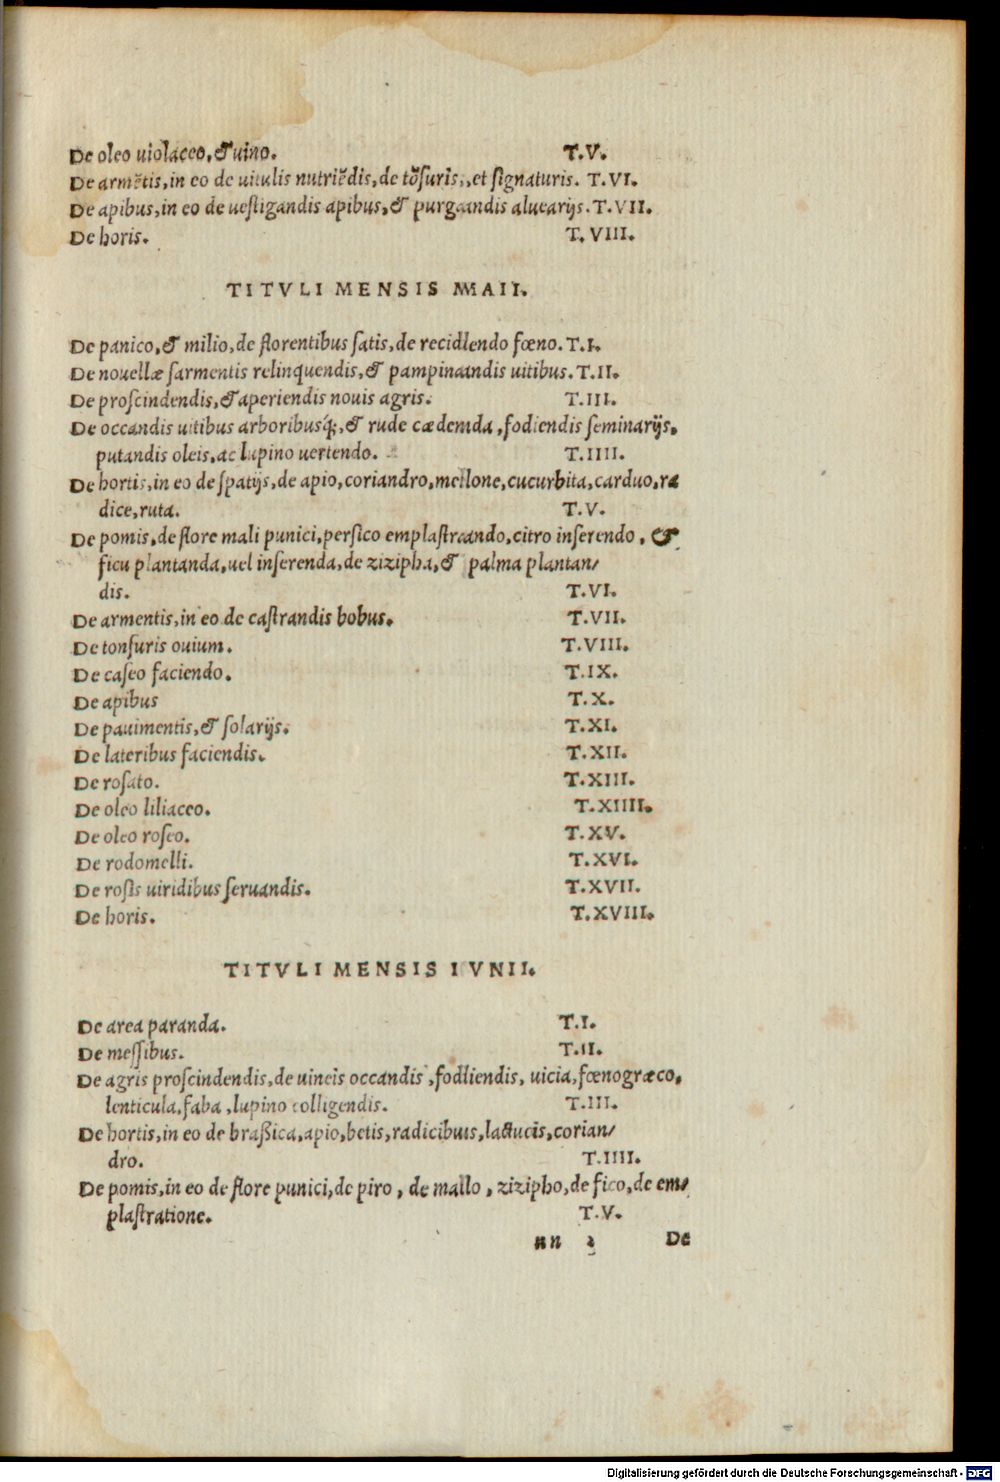 De oleo uiolaceo, & uino. T.V.
De armẽtis, in eo de uitulis nutriẽdis, de tõsuris, et signaturis. T.VI.
De apibus, in eo de uestigandis apibus, & purgandis aluearijs. T.VII.
De horis. T.VIII.
TITVLI MENSIS MAII.
De panico, & milio, de florentibus satis, de recidendo fœno. T.I.
De nouellæ sarmentis relinquendis, & pampinandis uitibus. T.II.
De proscindendis, & aperiendis nouis agris. T.III.
De occandis uitibus arboribusq́;, & rude cædenda, fodiendis seminarijs,
putandis oleis, ac lupino uertendo. T.IIII.
De hortis, in eo de spatijs, de apio, coriandro, mellone, cucurbita, carduo, ra
dice, ruta. T.V.
De pomis, de flore mali punici, persico emplastrando, citro inserendo, &
ficu plantanda, uel inserenda, de zizipha, & palma plantan/
dis. T.VI.
De armentis, in eo de castrandis bobus. T.VII.
De tonsuris ouium. T.VIII.
De caseo faciendo. T.IX.
De apibus T.X.
De pauimentis, & solarijs. T.XI.
De lateribus faciendis. T.XII.
De rosato. T.XIII.
De oleo liliaceo. T.XIIII.
De oleo roseo. T.XV.
De rodomelli. T.XVI.
De rosis uiridibus seruandis. T.XVII.
De horis. T.XVIII.
TITVLI MENSIS IVNII.
De area paranda. T.I.
De messibus. T.II.
De agris proscindendis, de uineis occandis, fodiendis, uicia, fœnogræco,
lenticula, faba, lupino colligendis. T.III.
De hortis, in eo de brassica, apio, betis, radicibus, lactucis, corian/
dro. T.IIII.
De pomis, in eo de flore punici, de piro, de mallo, zizipho, de fico, de em/
plastratione. T.V.
nn 2 De
Digitalisierung gefördert durch die Deutsche Forschungsgemeinschaft - DFG